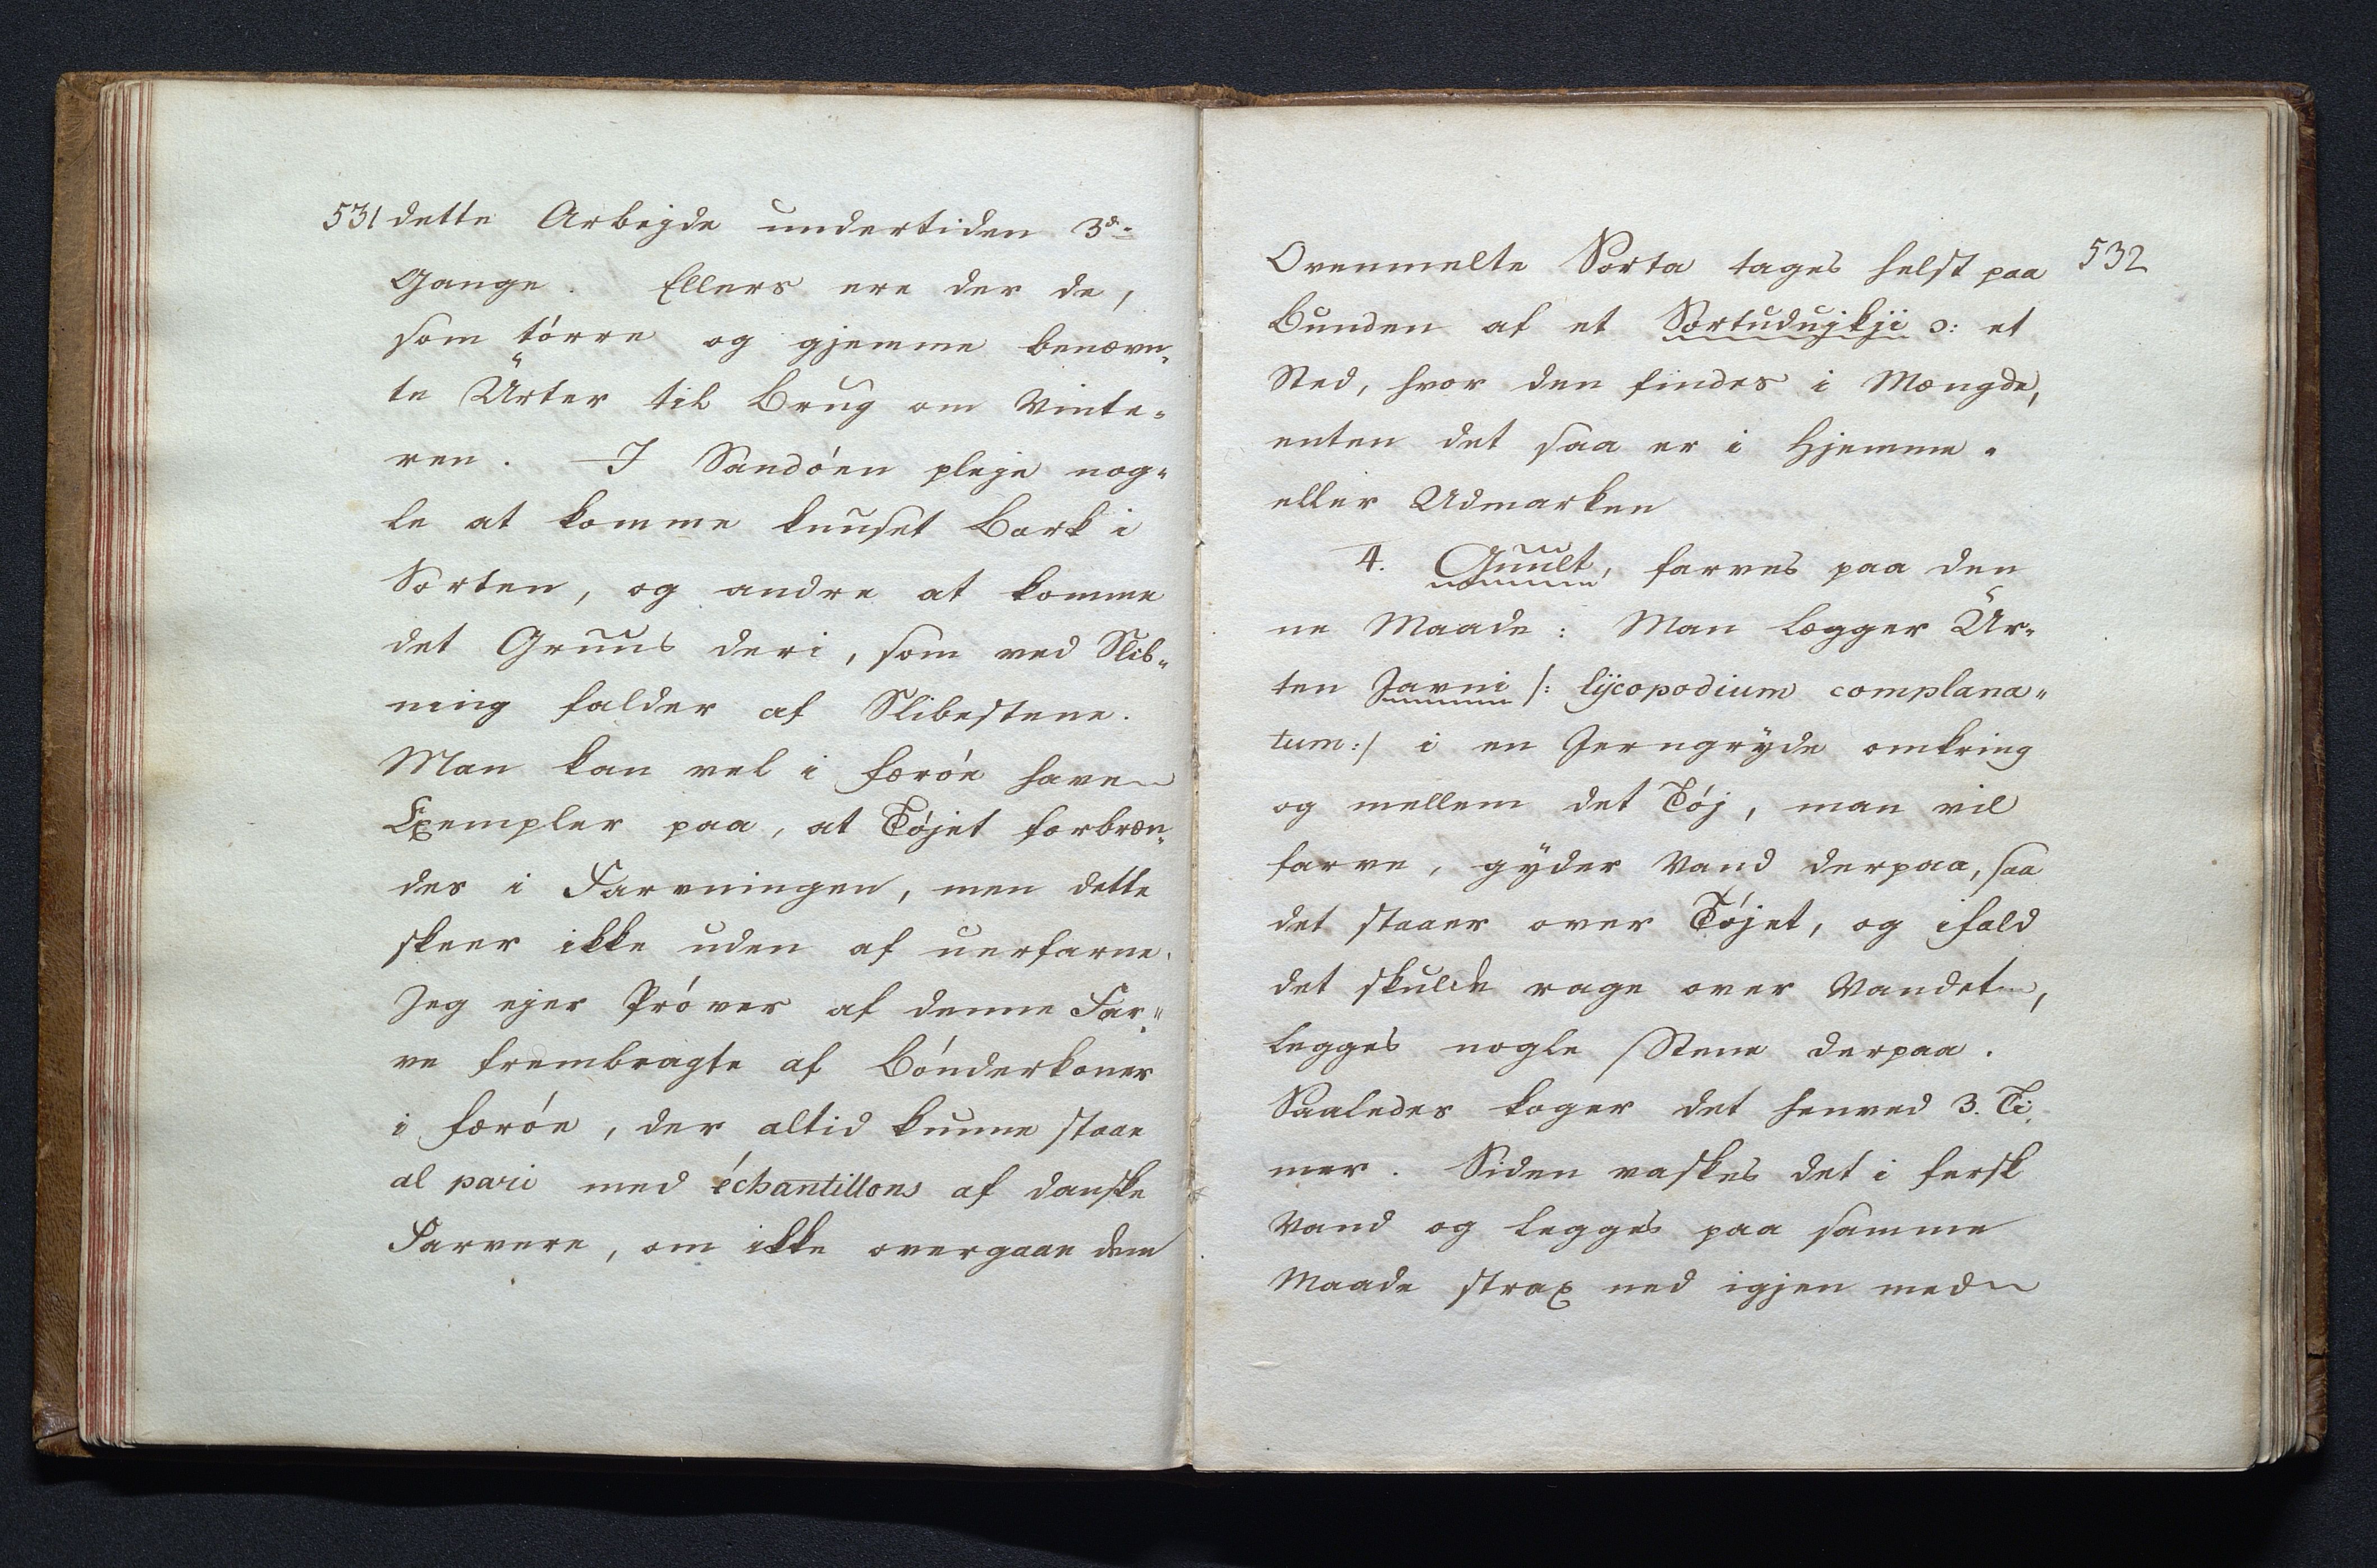 531 dette Arbejde undertiden 3de
Gange. Ellers ere der de,
som tórre og gjemme benævn„
te Urter til Brug om Vinte„
ren. I Sandóen pleje nog„
le at komme knuset Bark i
Sorten, og andre at komme
det Gruus deri, som ved Slib„
ning falder af Slibestene.
Man kan vel i Færóe have
Exempler paa, at Tójet forbræn„
des i Farvningen, men dette
skeer ikke uden af uerfarne.
Jeg ejer Próver af denne Far„
ve frembragte af Bónderkoner
i Færóe, der altid kunne staae
al pari med échantillons af danske
Farvere, om ikke overgaae dem
532
Ovenmelte Sorta tages helst paa
Bunden af et Sortudujkji ɔ: et
Sted, hvor den findes i Mængde,
enten det saa er i Hjemme„
eller Udmarken
4. Guult, farves paa den
ne Maade: Man lægger Ur„
ten Javni /: lÿcopodium complana„
tum :/ i en Jerngrÿde omkring
og mellem det Tój, man vil
farve, gÿder Vand derpaa, saa
det staaer over Tójet, og ifald
det skulde rage over Vandet,
legges nogle Stene derpaa.
Saaledes koger det henved 3. Ti„
mer. Siden vaskes det i fersk
Vand og legges paa samme
Maade strax ned igjen med